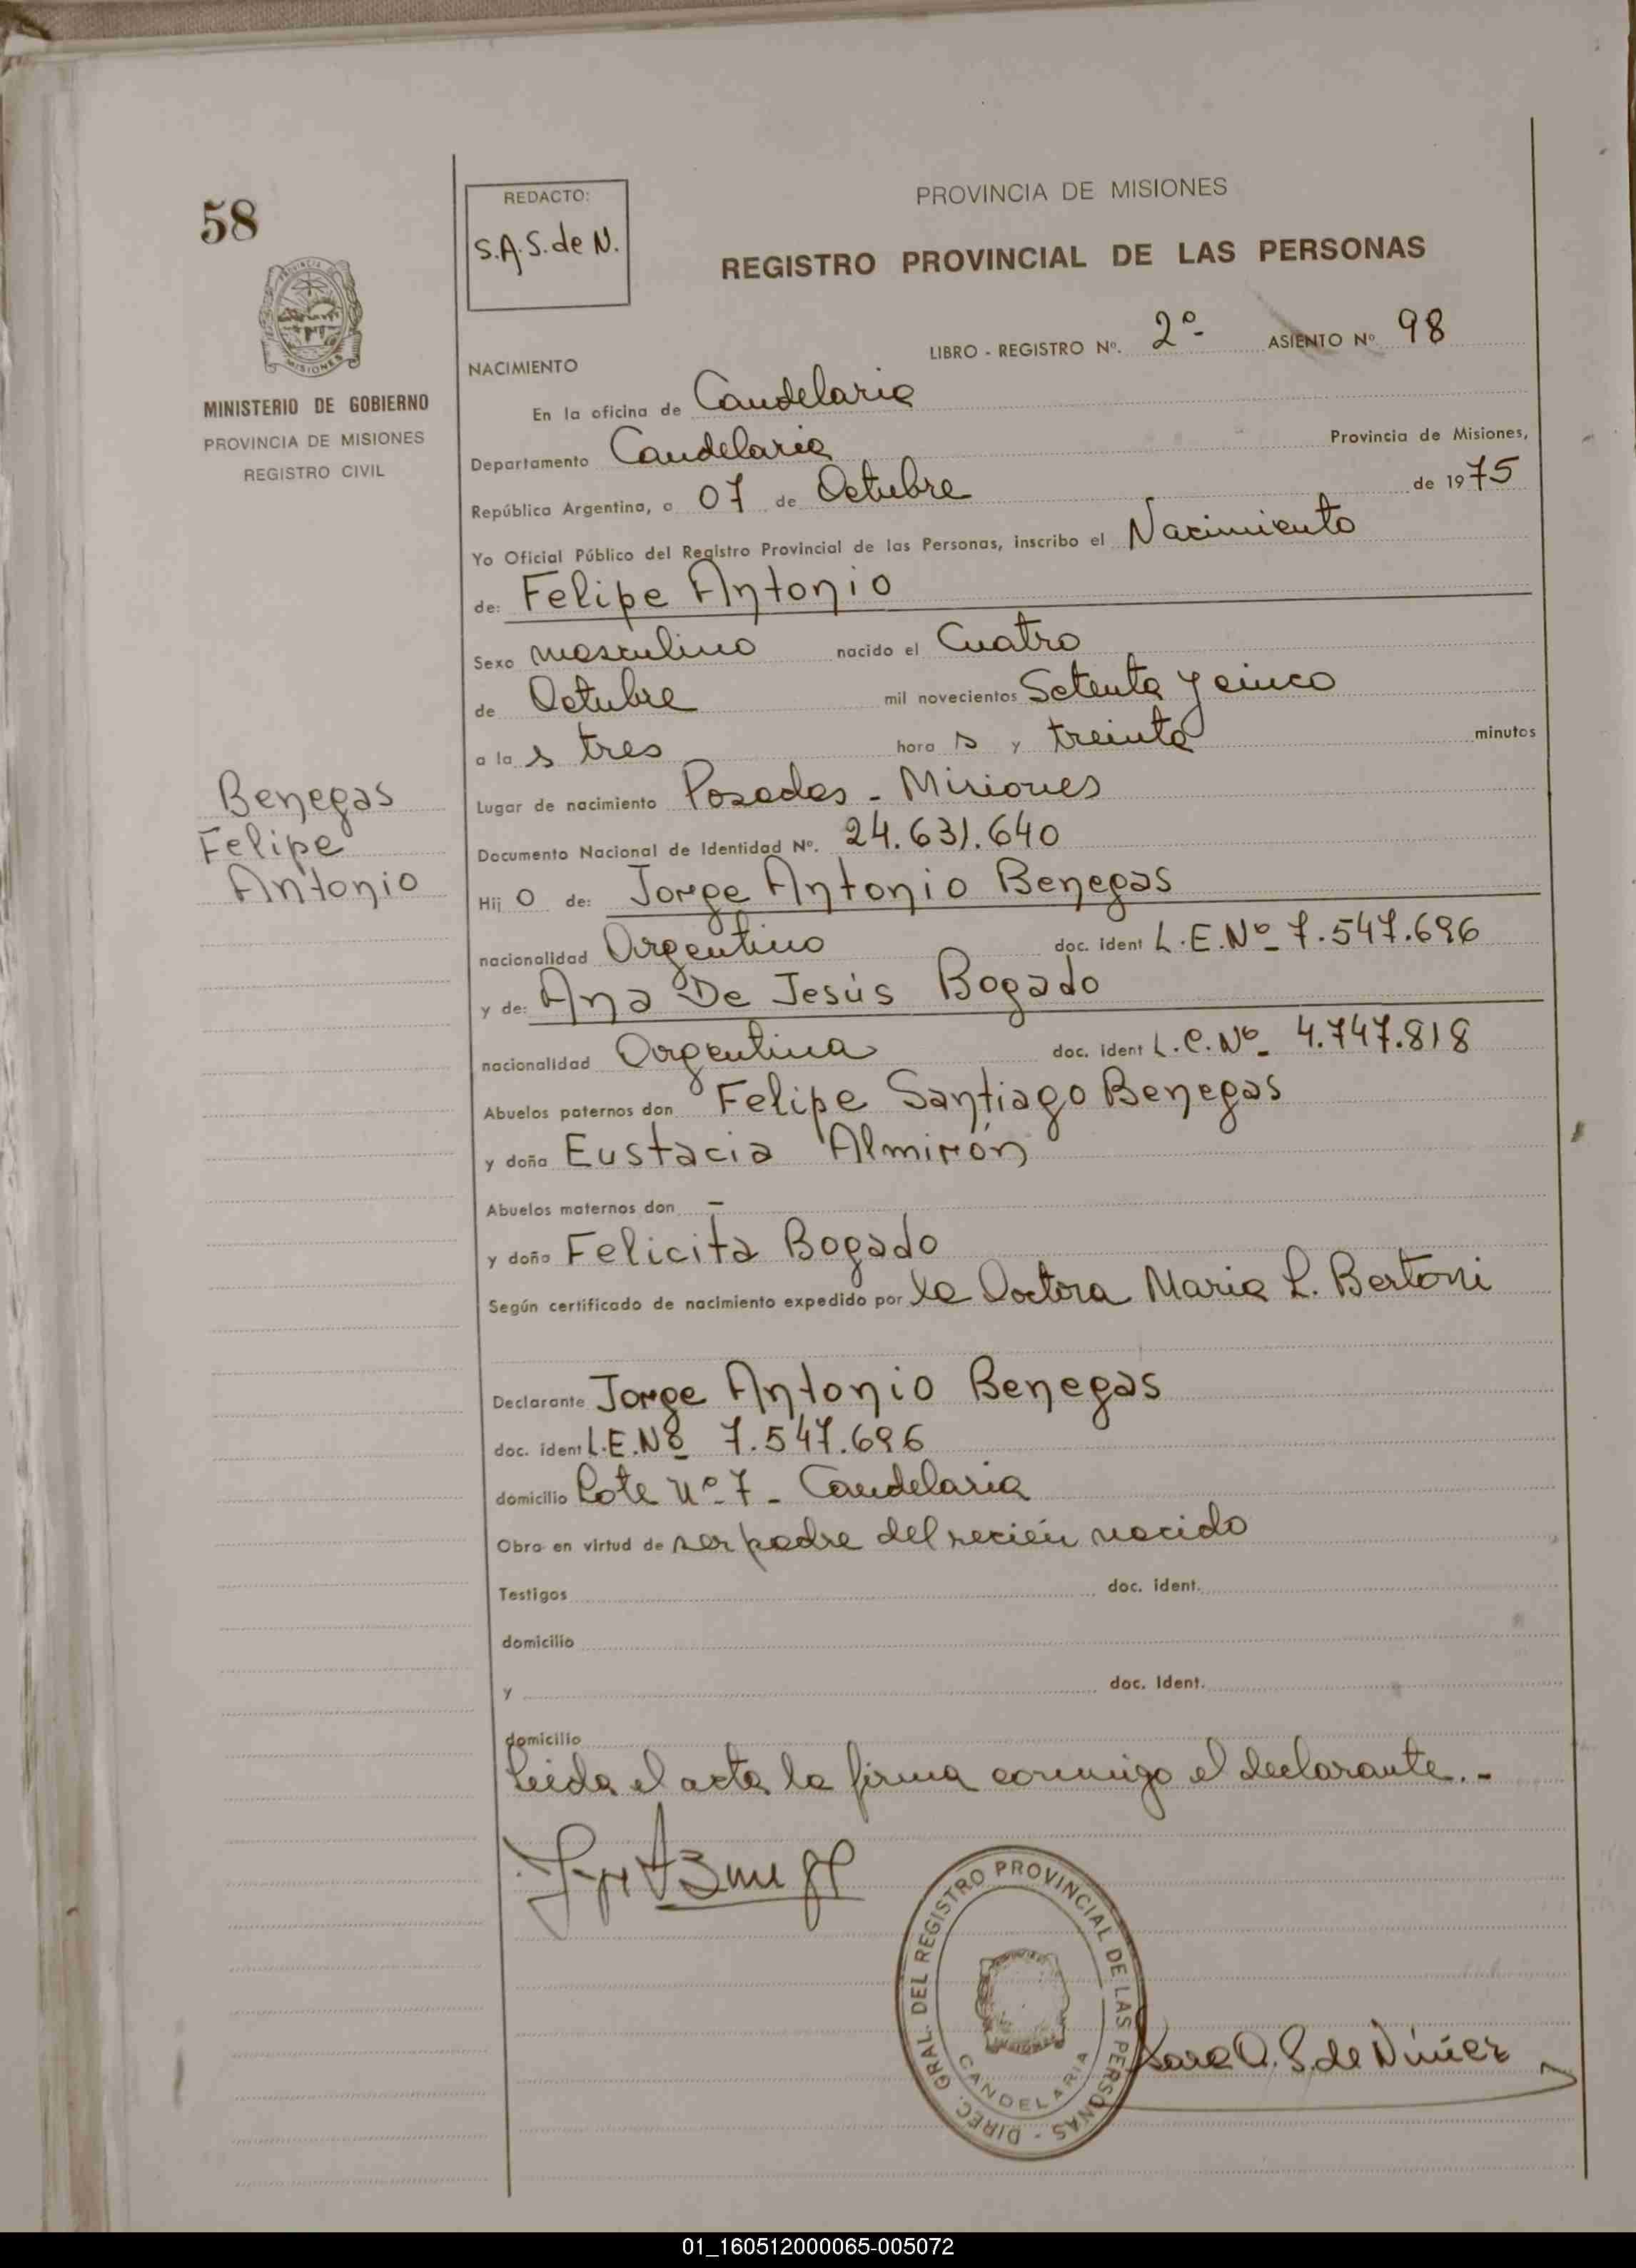 58
REDACTO:
S.A.S. de N.
PROVINCIA DE MISIONES
REGISTRO PROVINCIAL DE LAS PERSONAS
PROVINCIA DE MISIONES
MINISTERIO DE GOBIERNO
PROVINCIA DE MISIONES
REGISTRO CIVIL
LIBRO - REGISTRO Nº. 2º- ASIENTO Nº 98
NACIMIENTO
En la oficina de Candelaria
Departamento Candelaria Provincia de Misiones,
República Argentina, a 07 de Octubre de 1975
Yo Oficial Público del Registro Provincial de las Personas, inscribo el Nacimiento
de: Felipe Antonio
Sexo masculino nacido el Cuatro
de Octubre mil novecientos Setenta y cinco
a la s tres hora s y treinta minutos
Lugar de nacimiento Posadas - Misiones
Benegas
Felipe
Antonio
Documento Nacional de Identidad Nº. 24.631.640
Hij o de: Jorge Antonio Benegas
nacionalidad Argentino doc. ident L.E.Nº 7.547.696
y de: Ana De Jesús Bogado
nacionalidad Argentina doc. ident L.C.Nº 4.747.818
Abuelos paternos don Felipe Santiago Benegas
y doña Eustacia Almirón
Abuelos maternos don -
y doña Felicita Bogado
Según certificado de nacimiento expedido por la Doctora Maria L. Bertoni
Declarante Jorge Antonio Benegas
doc. ident L.E.Nº 7.547.696
domicilio Lote nº 7 - Candelaria
Obra en virtud de ser padre del recién nacido
Testigos doc. ident.
domicilio
y doc. Ident.
domicilio
Leida el acta la firma conmigo el declarante.-
DIREC. GRAL. DEL REGISTRO PROVINCIAL DE LAS PERSONAS -
CANDELARIA
Sara A. S. de Núñez
01_160512000065-005072